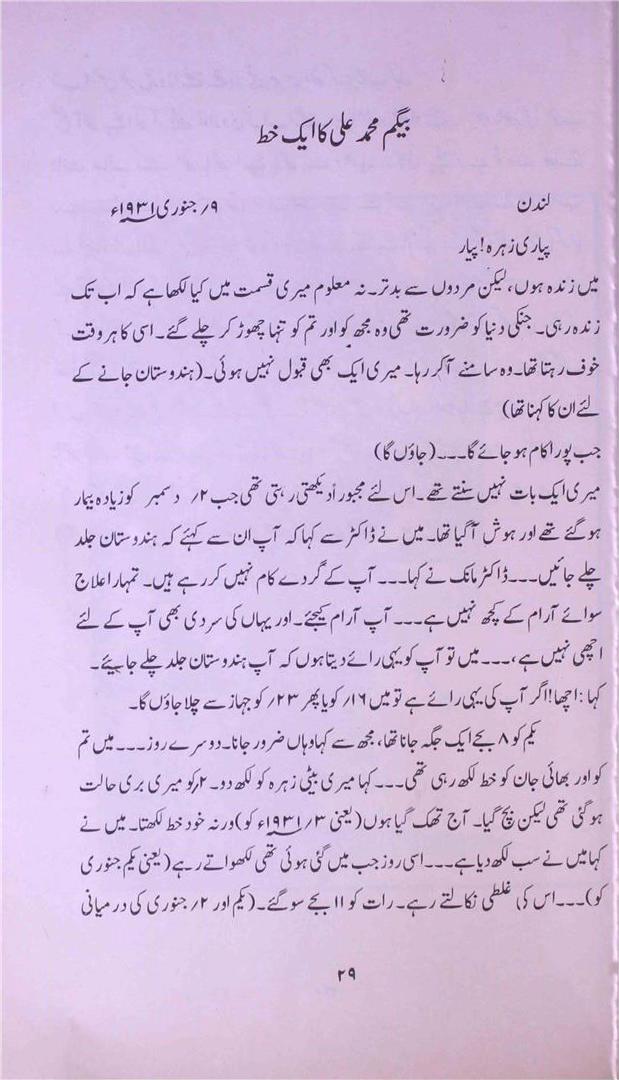 بیگم محمد علی کا ایک خط
لندن ۹؍ جنوری ۱۹۳۱ء
پیاری زہرہ! پیار
میں زندہ ہوں، لیکن مردوں سے بدتر۔ نہ معلوم میری قسمت میں کیا لکھا ہے کہ اب تک
زندہ رہی۔ جنکی دنیا کو ضرورت تھی وہ مجھ کو اور تم کو تنہا چھوڑ کر چلے گئے۔ اسی کا ہر وقت
خوف رہتا تھا۔ وہ سامنے آ کر رہا۔ میری ایک بھی قبول نہیں ہوئی۔ (ہندوستان جانے کے
لئے ان کا کہنا تھا)
جب پورا کام ہو جائے گا۔۔۔ (جاؤں گا)
میری ایک بات نہیں سنتے تھے۔ اس لئے مجبوراً دیکھتی رہتی تھی جب ۲؍ دسمبر کو زیادہ بیمار
ہو گئے تھے اور ہوش آ گیا تھا۔ میں نے ڈاکٹر سے کہا کہ آپ ان سے کہئے کہ ہندوستان جلد
چلے جائیں۔۔۔ ڈاکٹر مانک نے کہا۔۔۔ آپ کے گردے کام نہیں کر رہے ہیں۔ تمہارا علاج
سوائے آرام کے کچھ نہیں ہے۔۔۔ آپ آرام کیجئے۔ اور یہاں کی سردی بھی آپ کے لئے
اچھی نہیں ہے،۔۔۔ میں تو آپ کو یہی رائے دیتا ہوں کہ آپ ہندوستان جلد چلے جایئے۔
کہا: اچھا! اگر آپ کی یہی رائے ہے تو میں ۱۶؍ کو یا پھر ۲۳؍ کو جہاز سے چلا جاؤں گا۔
یکم کو ۸ بجے ایک جگہ جانا تھا، مجھ سے کہا وہاں ضرور جانا۔ دوسرے روز۔۔۔ میں تم
کو اور بھائی جان کو خط لکھ رہی تھی۔۔۔ کہا میری بیٹی زہرہ کو لکھ دو۔ ۲؍ کو میری بری حالت
ہو گئی تھی لیکن بچ گیا۔ آج تھک گیا ہوں (یعنی ۳؍ ۱۹۳۱ء کو) ورنہ خود خط لکھتا۔ میں نے
کہا میں نے سب لکھ دیا ہے۔۔۔ اسی روز جب میں گئی ہوئی تھی لکھواتے رہے (یعنی یکم جنوری
کو)۔۔۔ اس کی غلطی نکالتے رہے۔ رات کو ۱۱ بجے سو گئے۔ (یکم اور ۲؍ جنوری کی درمیانی
۲۹